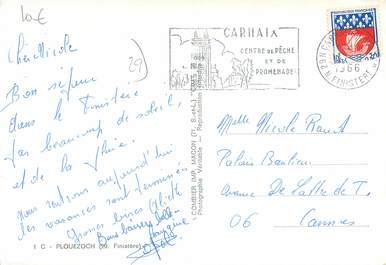 10€
Chère Nicole
29
Bon séjour
dans le Finistère
pas beaucoup de soleil,
et de la Pluie.
nous rentrons aujourd'hui
les vacances sont terminées
Grosses bises
Bons baisers
1 C - PLOUEZOCH (29. Finistère)
COMBIER IMP. MACON (71, S.-et-L.)
Photographie Véritable - Reproduction
CARHAIX
CENTRE DE PÊCHE
ET DE
PROMENADE
29N
1966
FINISTERE
REPUBLIQUE FRANÇAISE
Melle Nicole
Palais
avenue De Lattre de T.
06 Cannes